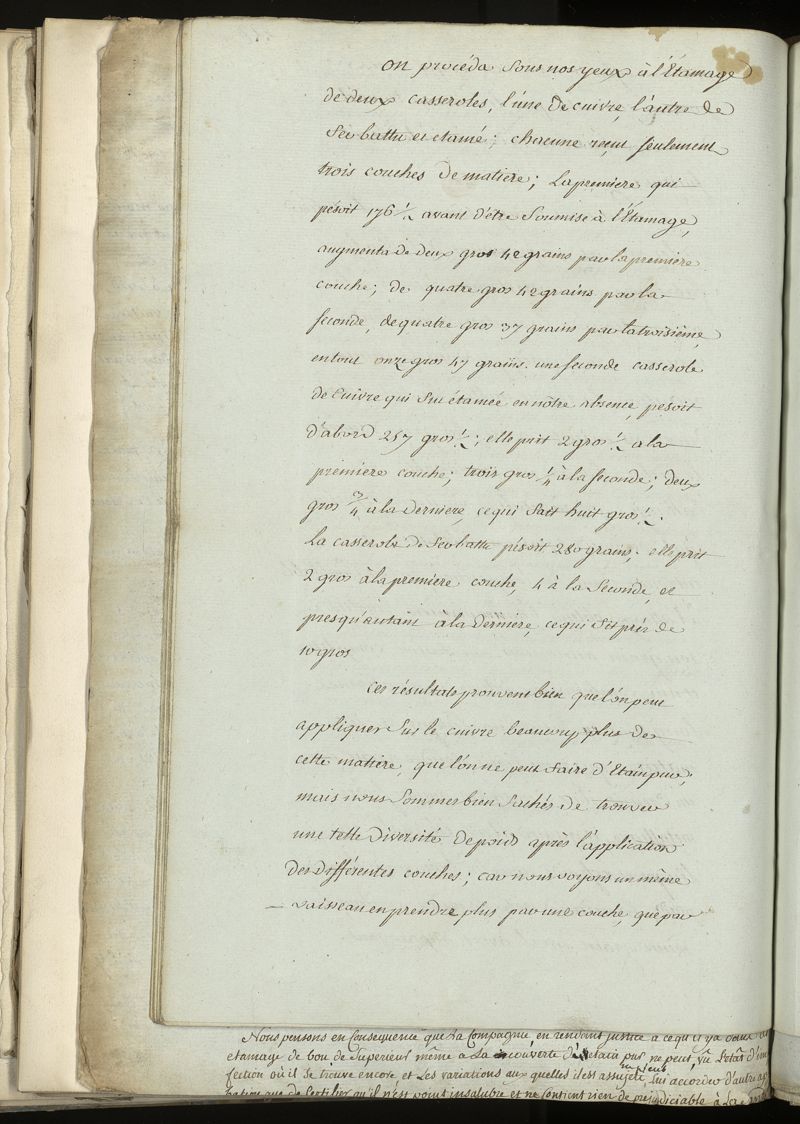 On procéda sous nos yeux à l'Étamage
de deux casseroles, l'une de cuivre, l'autre de
fer battu et etamé; chacune reçut seulement
trois couches de matiere; La premiere qui
pésoit 176 1/2 avant d'être soumise à l'Étamage,
augmenta de deux gros 42 grains par la première
couche; de quatre gros 42 grains par la
seconde, de quatre gros 37 grains par la troisième,
en tout onze gros 47 grains. une seconde casserole
de Cuivre qui fut étamée en nôtre absence, pesoit
d'abord 257 gros 1/2; elle prit 2 gros 1/2 a la
premiere couche; trois gros 1/4 à la seconde; deux
gros 3/4 à la derniere, ce qui fait huit gros 1/2.
La casserole de fer battu pésoit 280 grains; elle prit
2 gros à la premiere couche, 4 à la seconde, et
presqu'autant à la derniere, ce qui fit près de
10 gros
Ces résultats prouvent bien que l'on peut
appliquer sur le cuivre beaucoup plus de
cette matiere, que l'on ne peut faire d'Etain pur;
mais nous sommes bien fachés de trouver
une telle diversité de poids après l'application
des différentes couches; car nous voyons un même
vaisseau en prendre plus par une couche, que par
Nous pensons en Consequence que La Compagnie en rendant justice a ce qu'il y a dans
etamage de bon de superieur même a La couverte d'etain pur ne peut, vû L'etat d'im
fection où il se trouve encore et Les variations aux quelles il est assujeti, lui accorder d'autre ap
bation que de Certifier qu'il n'est point insalubre et ne Contient rien de préjudiciable à La